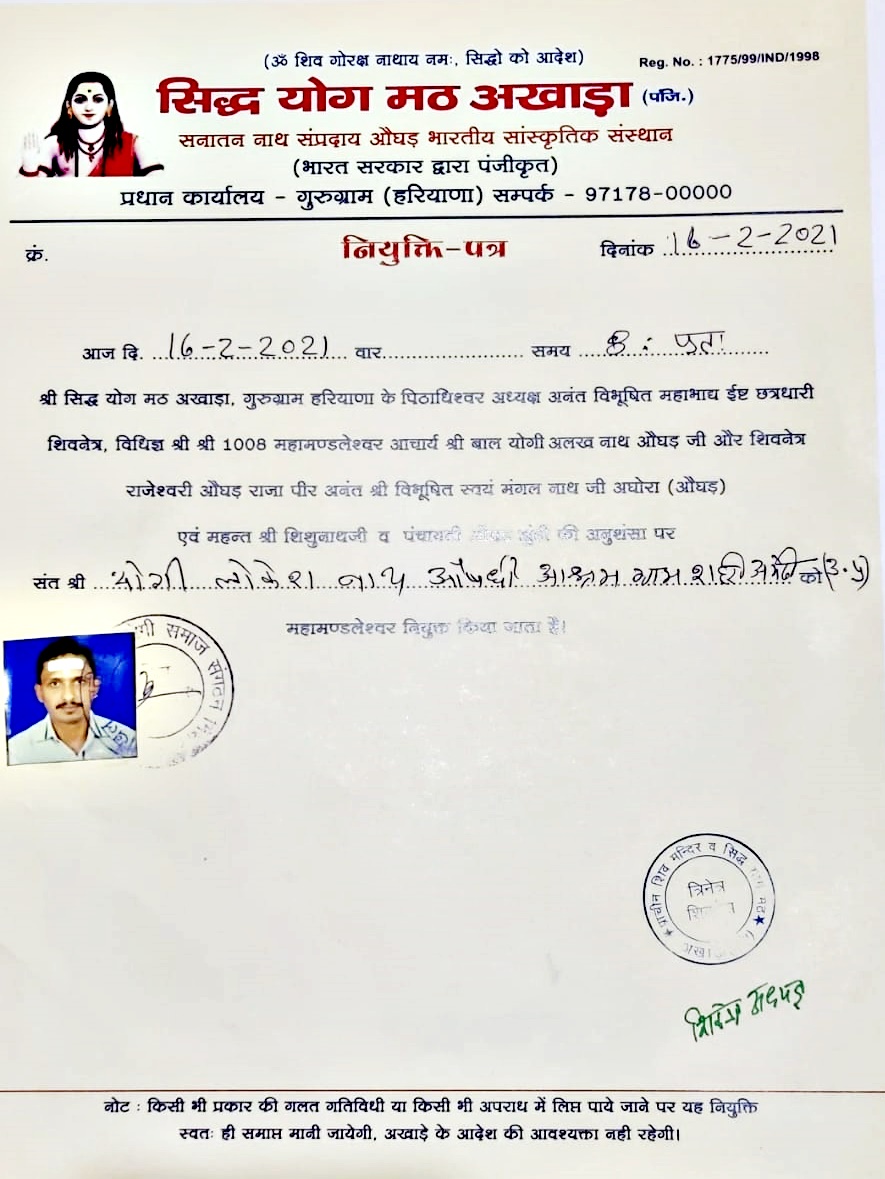 (ॐ शिव गोरक्ष नाथाय नमः, सिद्धो को आदेश)
Reg. No. : 1775/99/IND/1998
सिद्ध योग मठ अखाड़ा (पजि.)
सनातन नाथ संप्रदाय औघड़ भारतीय सांस्कृतिक संस्थान
(भारत सरकार द्वारा पंजीकृत)
प्रधान कार्यालय - गुरुग्राम (हरियाणा) सम्पर्क - 97178-00000
क्रं. नियुक्ति-पत्र दिनांक 16-2-2021
आज दि. 16-2-2021 वार.......................... समय 8:
श्री सिद्ध योग मठ अखाड़ा, गुरुग्राम हरियाणा के पिठाधिश्वर अध्यक्ष अनंत विभूषित महाभाद्य ईष्ट छत्रधारी
शिवनेत्र, विधिज्ञ श्री श्री 1008 महामण्डलेश्वर आचार्य श्री बाल योगी अलख नाथ औघड़ जी और शिवनेत्र
राजेश्वरी औघड़ राजा पीर अनंत श्री विभूषित स्वयं मंगल नाथ जी अघोरा (औघड़)
एवं महन्त श्री शिशुनाथजी व पंचायती की अनुशंसा पर
संत श्री योगी लोकेश नाथ औषधी आश्रम ग्राम को (उ.प्र)
महामण्डलेश्वर नियुक्त किया जाता है।
गी समाज संगठन
प्राचीन शिव मन्दिर व सिद्ध मठ
त्रिनेत्र
त्रिनेत्र
नोट : किसी भी प्रकार की गलत गतिविधी या किसी भी अपराध में लिप्त पाये जाने पर यह नियुक्ति
स्वतः ही समाप्त मानी जायेगी, अखाड़े के आदेश की आवश्यक्ता नही रहेगी।